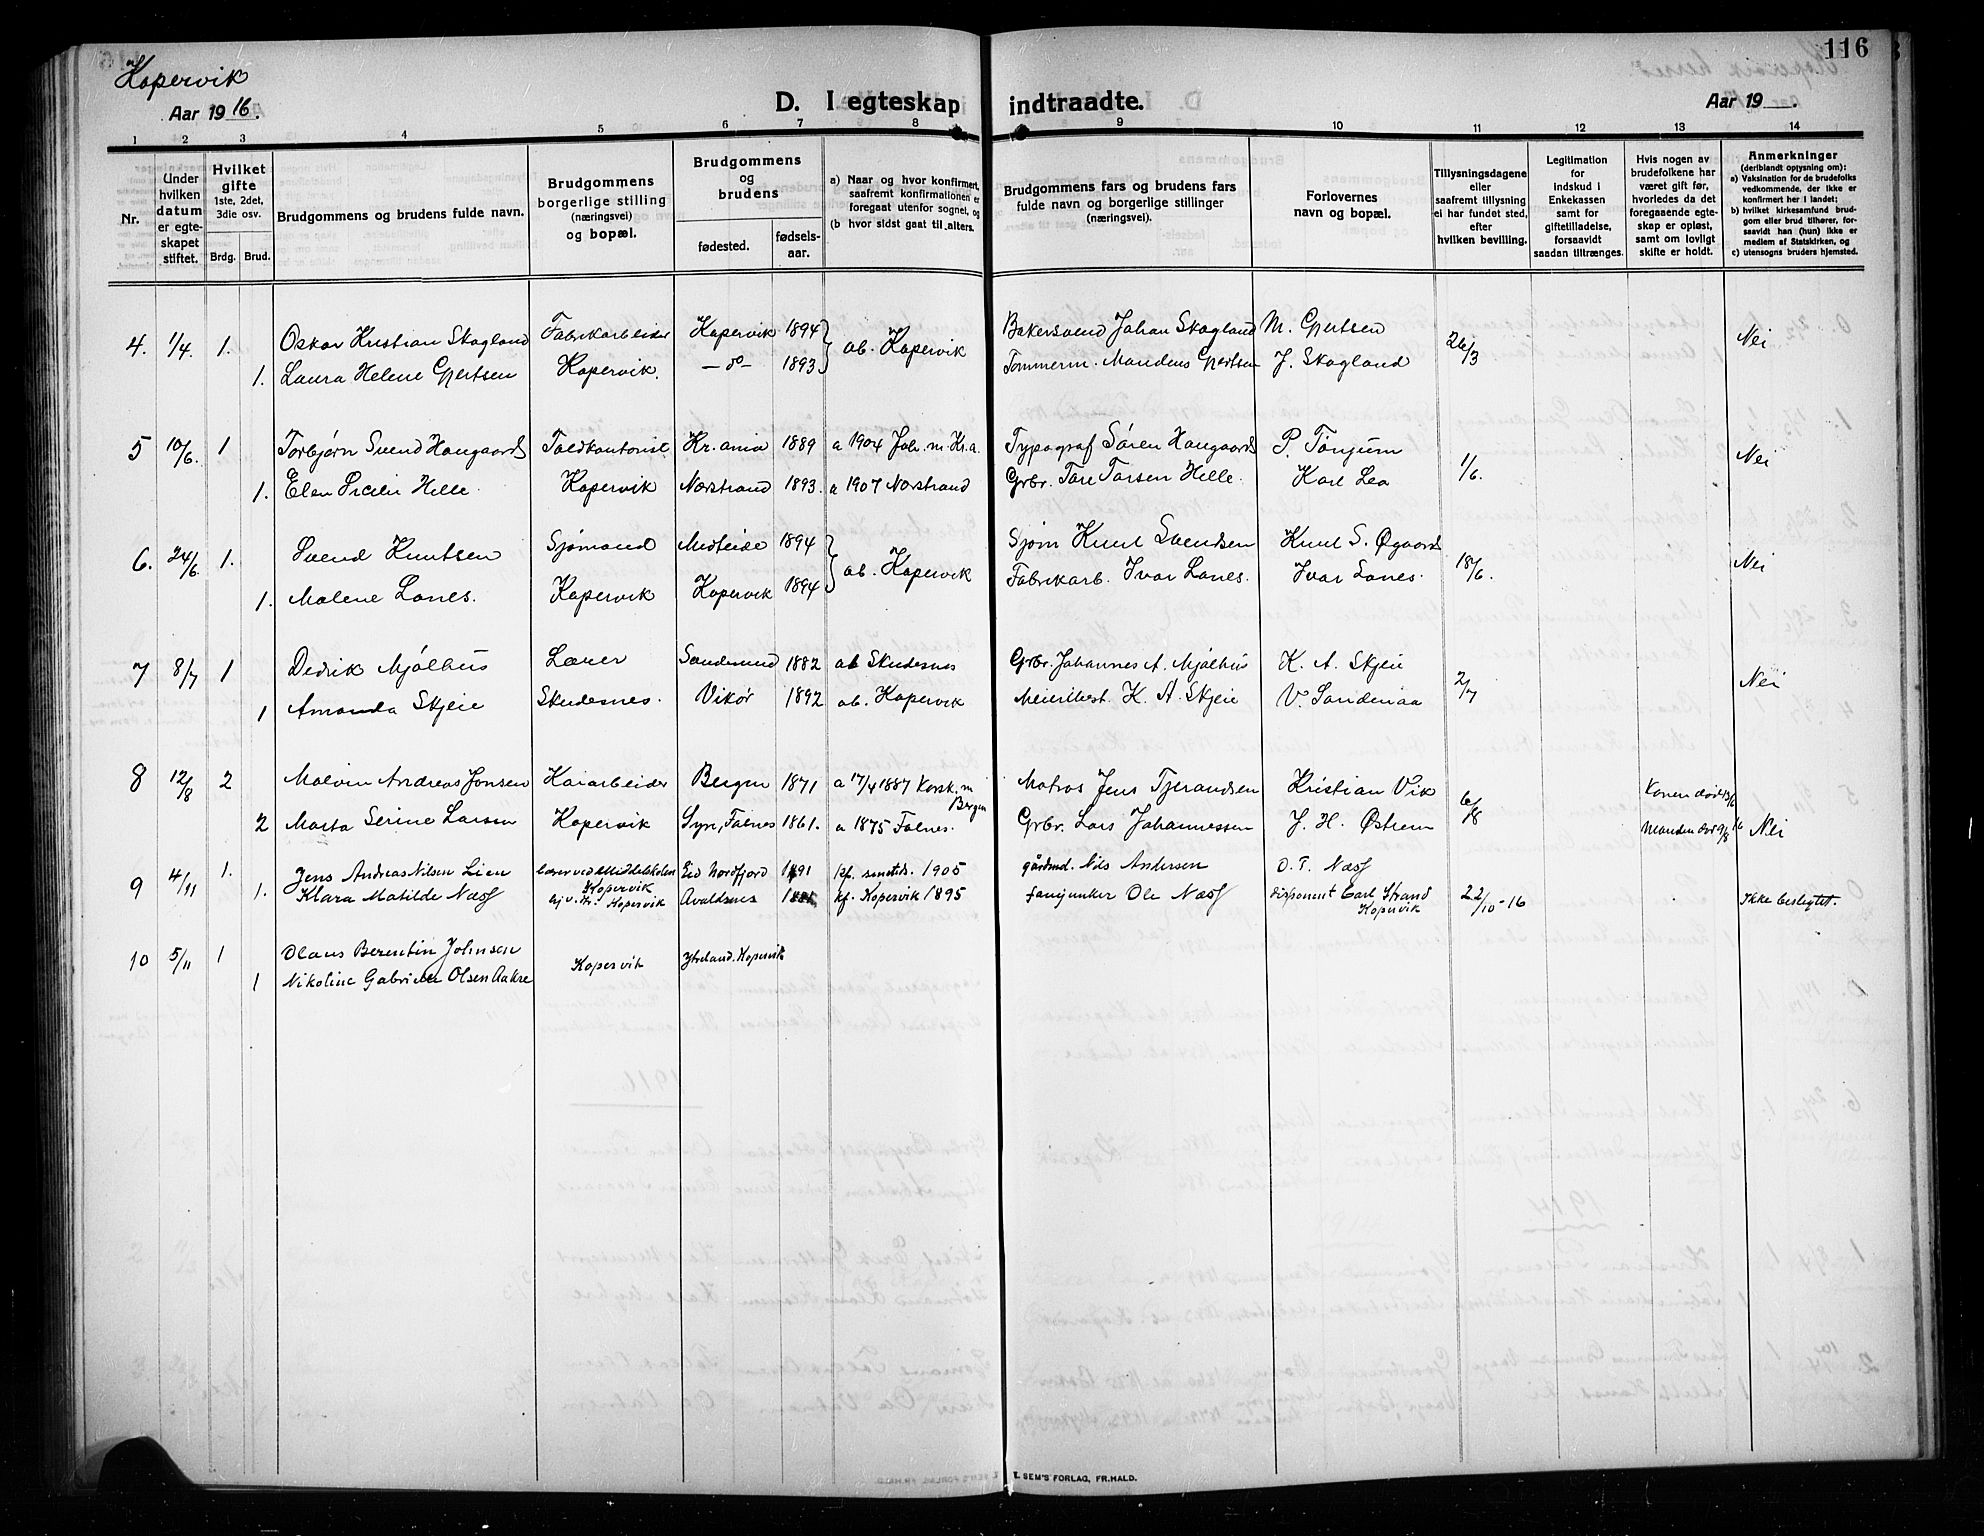 Kopervik
Aar 1916.
D. I egteskap indtraadte.
Aar 19
116
1 2 3 4 5 6 7 8 9 10 11 12 13 14
Nr.
Under hvilken datum er egteskapet stiftet.
Hvilket gifte 1ste, 2det, 3die osv.
Brdg. Brud.
Brudgommens og brudens fulde navn.
Brudgommens borgerlige stilling (næringsvei) og bopæl.
Brudgommens og brudens
fødested. fødselsaar.
a) Naar og hvor konfirmert, saafremt konfirmationen er foregaat utenfor sognet, og
(b hvor sidst gaat til alters.
Brudgommens fars og brudens fars fulde navn og borgerlige stillinger (næringsvei).
Forlovernes navn og bopæl.
Tillysningsdagene eller saafremt tillysning ei har fundet sted, efter hvilken bevilling.
Legitimation for indskud i Enkekassen samt for giftetilladelse, forsaavidt saadan tiltrænges.
Hvis nogen av brudefolkene har været gift før, hvorledes da det foregaaende egteskap er opløst, samt om lovligt skifte er holdt.
Anmerkninger (deriblandt oplysning om):
a) Vaksination for de brudefolks vedkommende, der ikke er konfirmert her i landet;
b) hvilket kirkesamfund brudgom eller brud tilhører, forsaavidt han (hun) ikke er medlem af Statskirken, og
c) utensogns bruders hjemsted.
4. 1/4. 1. Oskar Kristian Skogland Fabrikarbeider Kopervik 1894 ab. Kopervik Bakersvend Johan Skogland M. Gjertsen 26/3 Nei
1. Laura Helene Gjertsen Kopervik. —do— 1893 Tømmerm. Mandens Gjertsen J. Skogland
5 10/6. 1 Torbjørn Svend Haugaard Toldkontorist Kr.ania 1889 a 1904 Joh. m. Kr.a. Typograf Søren Haugaard P. Tønjum 1/6. Nei
1. Elen Helle. Kopervik Nærstrand 1893. a 1907 Nærstrand Grbr. Tore Torsen Helle. Karl Lea
6. 24/6 1. Svend Knutsen Sjømand Medleide 1894 ab. Kopervik Sjøm Knut Svendsen Knut S. Øgaard 18/6. Nei
1. Malene Lones. Kopervik Kopervik 1894 Fabrikarb. Ivar Lones. Ivar Lones.
7 8/7 1 Dedrik Mjølhus Lærer Sandesund 1882 ab Skudesnes Grbr. Johannes A. Mjølhus K. A. Skjeie 2/7 Nei
1 Amanda Skjeie Skudesnes. Vikør 1892 ab. Kopervik Meieribest. K. A. Skjeie V. Sandenaa
8 12/8 2 Malvin Andreas Jonsen Kaiarbeider Bergen 1871 a 17/4 1887 Korsk. m Bergen Matros Jens Tjerandsen Kristian Vik 6/8 Konen død
2 Marta Serine Larsen Kopervik Syre, Falnes 1861. a 1875 Falnes. Grbr. Lars Johannessen J. H. Østrem Manden død 9/8 Nei
9 4/11 1. Jens Andreas Nilsen Lien lærer ved Middelskolen Kopervik Eid Nordfjord 1891 kf. smstds. 1905 gårdmd. Nils Andersen O. T. Næss 22/10-16 Ikke beslegtet.
1. Klara Matilde Næss Kopervik Avaldsnes kf. Kopervik 1895 fanejunker Ole Næss disponent Carl Strand Kopervik
10 5/11 1 Olaus Berentin Johnsen Kopervik Ytreland. Kopervik
1 Nikoline Gabrielle Olsen Aakre
E. SEM'S FORLAG, FR.HALD.